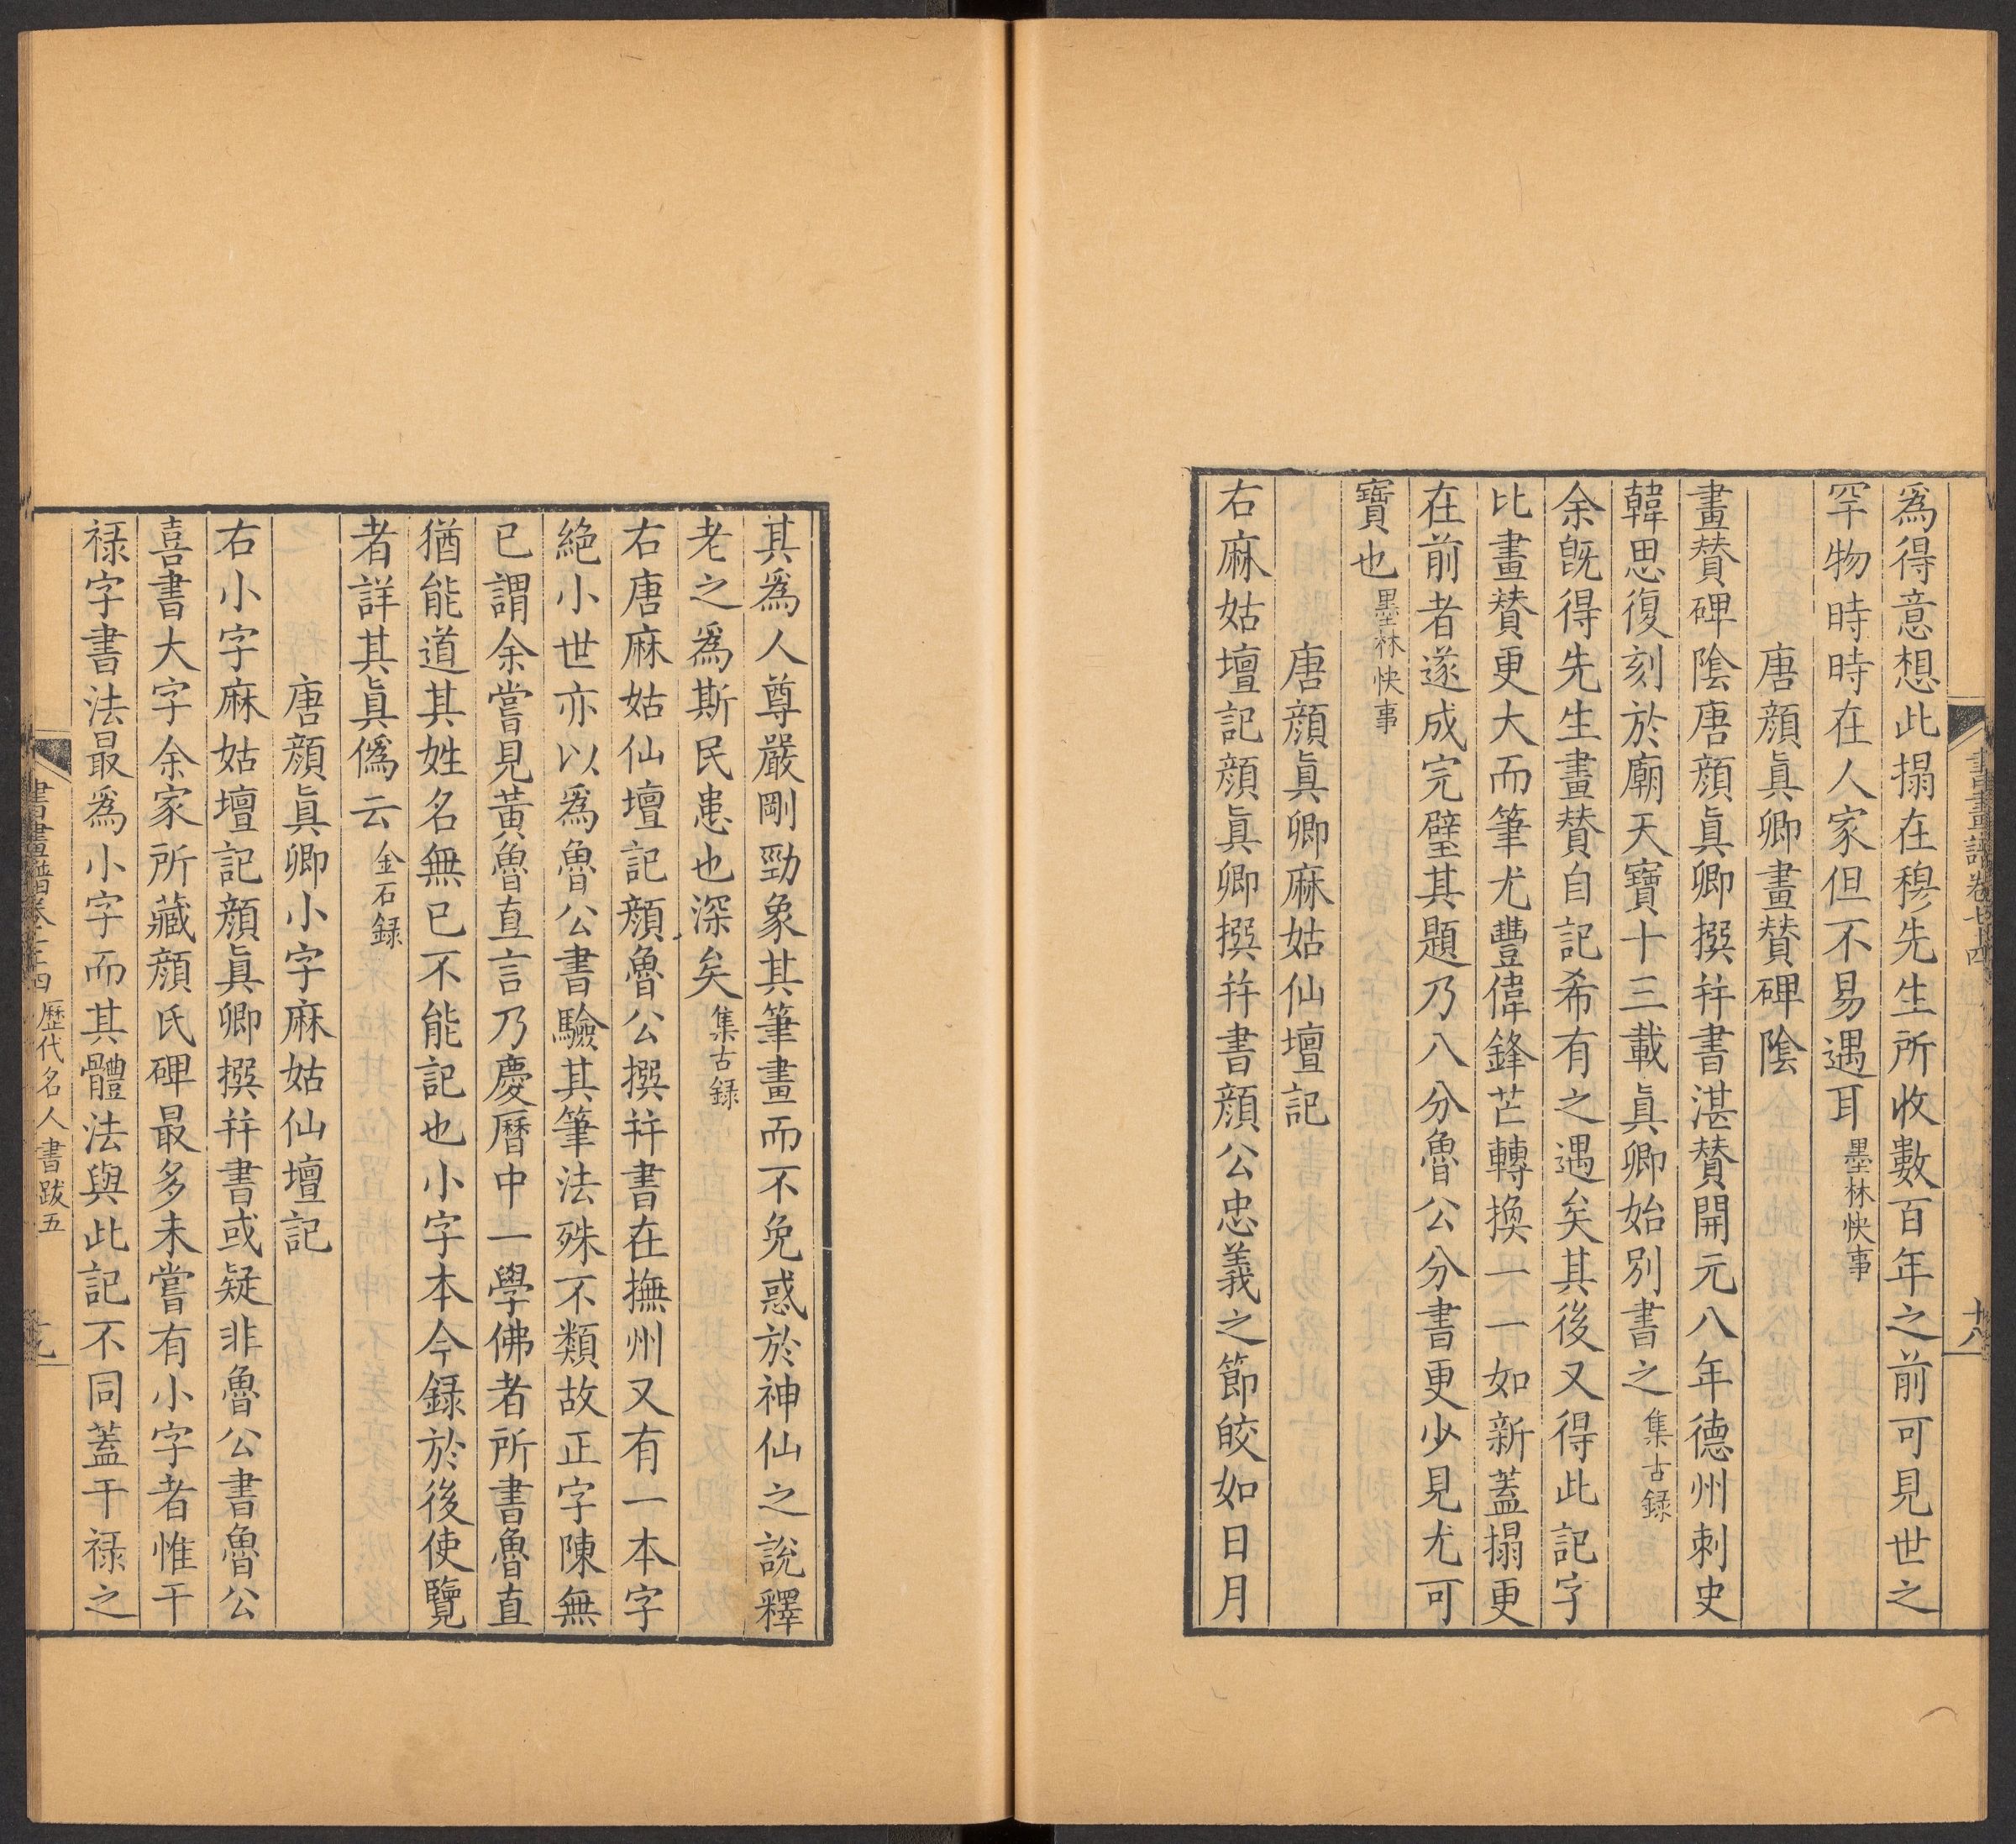 爲得意想此搨在穆先生所收數百年之前可見世之
罕物時時在人家但不易遇耳墨林快事
唐顔眞卿畫賛碑陰
畫賛碑陰唐顔眞卿撰幷書湛賛開元八年德州刺史
韓思復刻於廟天寶十三載眞卿始別書之集古録
余旣得先生畫賛自記希有之遇矣其後又得此記字
比畫賛更大而筆尤豐偉鋒芒轉換一一如新蓋搨更
在前者遂成完璧其題乃八分魯公分書更少見尤可
寶也墨林快事
唐顔眞卿麻姑仙壇記
右麻姑壇記顔眞卿撰幷書顔公忠義之節皎如日月
書畫譜卷 十八
其爲人尊嚴剛勁象其筆畫而不免惑於神仙之說釋
老之爲斯民患也深矣集古録
右唐麻姑仙壇記顔魯公撰幷書在撫州又有一本字
絶小世亦以爲魯公書驗其筆法殊不類故正字陳無
已謂余嘗見黄魯直言乃慶曆中一學佛者所書魯直
猶能道其姓名無已不能記也小字本今録於後使覽
者詳其眞僞云金石録
唐顔眞卿小字麻姑仙壇記
右小字麻姑壇記顔眞卿撰幷書或疑非魯公書魯公
喜書大字余家所藏顔氏碑最多未嘗有小字者惟干
禄字書法最爲小字而其體法與此記不同蓋干禄之
書畫譜卷 四 歷代名人書跋五